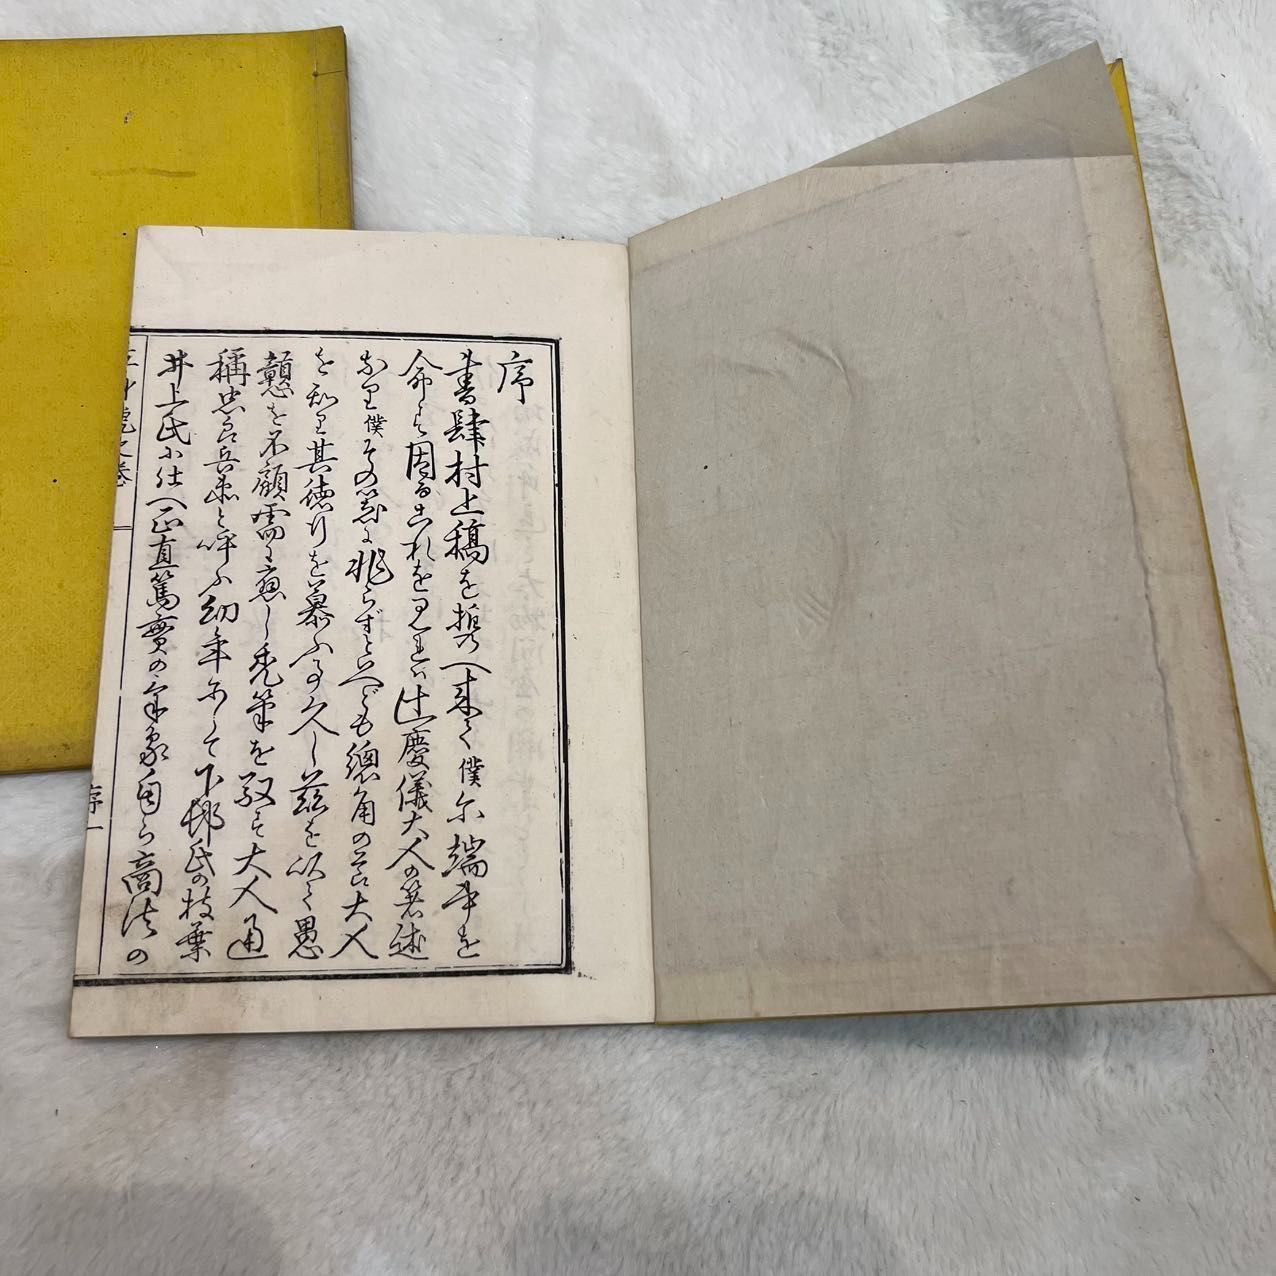 序
書肆村上稿を携へ来て僕尓端書を
命ず因るこれを見れば辻慶儀大人の著述
なり僕その器に非らずといへども總角の昔大人
を知り其徳行を慕ふ事久し茲を以て愚
戇を不顧需に應し禿筆を馭す大人通
稱忠兵衛と呼ふ幼年にして下邨氏の枝葉
井上氏に仕へ正直篤實の氣象自ら商法の
序一